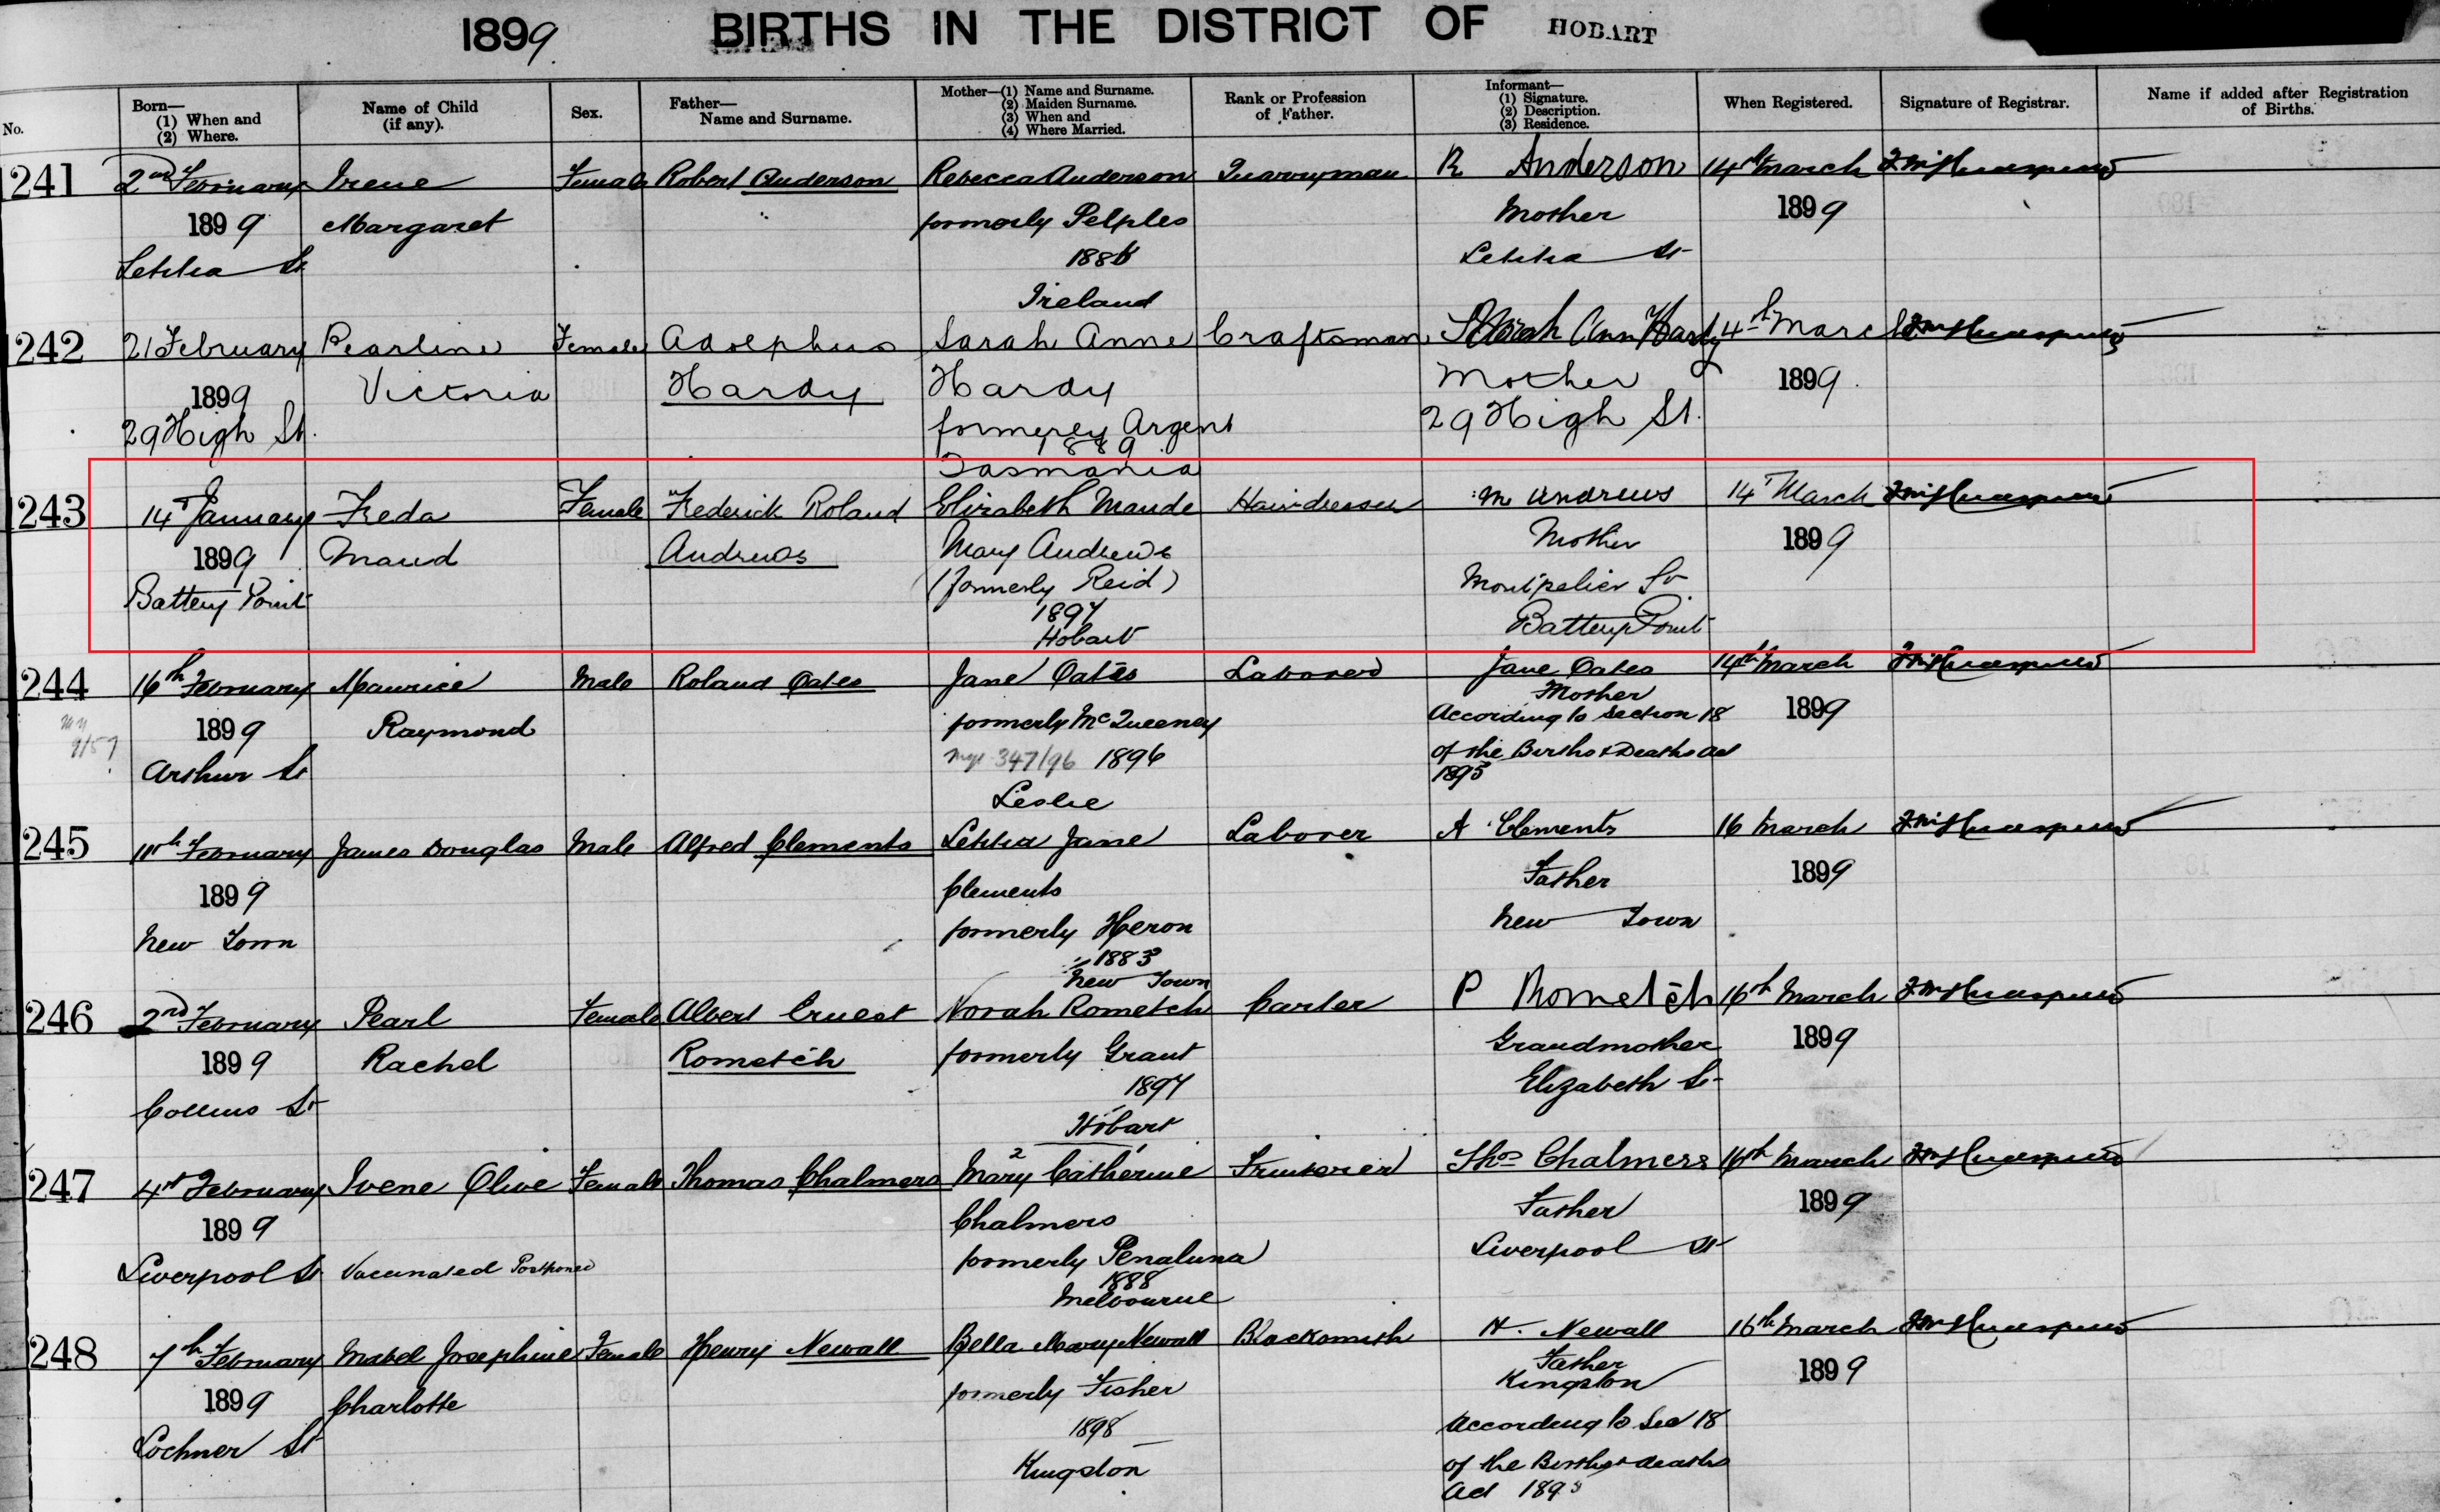 1899 BIRTHS IN THE DISTRICT OF HOBART
No.
Born—
(1) When and
(2) Where.
Name of Child
(if any).
Sex.
Father—
Name and Surname.
Mother—(1) Name and Surname.
(2) Maiden Surname.
(3) When and
(4) Where Married.
Rank or Profession
of Father.
Informant—
(1) Signature.
(2) Description.
(3) Residence.
When Registered.
Signature of Registrar.
Name if added after Registration
of Births.
241 2nd February Irene Female Robert Anderson Rebecca Anderson Quarryman R Anderson 14th March
1899 Margaret formerly Pelples Mother 1899
Letitia St 1886 Letitia St
Ireland
242 21 February Pearline Female Adolphus Sarah Anne Craftsman Sarah Ann Hardy 14th March
1899 Victoria Hardy Hardy Mother 1899
29 High St. formerly Argent 29 High St.
1889
Tasmania
243 14th January Freda Female Frederick Roland Elizabeth Maude Hairdresser M Andrews 14th March
1899 Maud Andrews Mary Andrews Mother 1899
Battery Point (formerly Reid) Montpelier St.
1897 Battery Point
Hobart
244 16th February Maurice Male Roland Oates Jane Oates Laborer Jane Oates 14th March
Mother
1899 Raymond formerly McQueeney According to Section 18 1899
Arthur St 347/96 1896 of the Births & Deaths Act
Leslie 1895
245 11th February James Douglas Male Alfred Clements Letitia Jane Laborer A Clements 16 March
1899 Clements Father 1899
New Town formerly Heron New Town
1883
New Town
246 2nd February Pearl Female Albert Ernest Norah Rometch Carter P Rometch 16th March
1899 Rachel Rometch formerly Grant Grandmother 1899
Collins St 1897 Elizabeth St
Hobart
247 4th February Ivene Olive Female Thomas Chalmers Mary Catherine Fruiterer Thos Chalmers 16th March
1899 Chalmers Father 1899
Liverpool St Vaccinated Postponed formerly Penaluna Liverpool St
1888
Melbourne
248 7th February Mabel Josephine Female Henry Newall Bella Mary Newall Blacksmith H. Newall 16th March
1899 Charlotte formerly Fisher Father 1899
Kingston
Lochner St 1898 According to Sec 18
Kingston of the Births & deaths
Act 1895